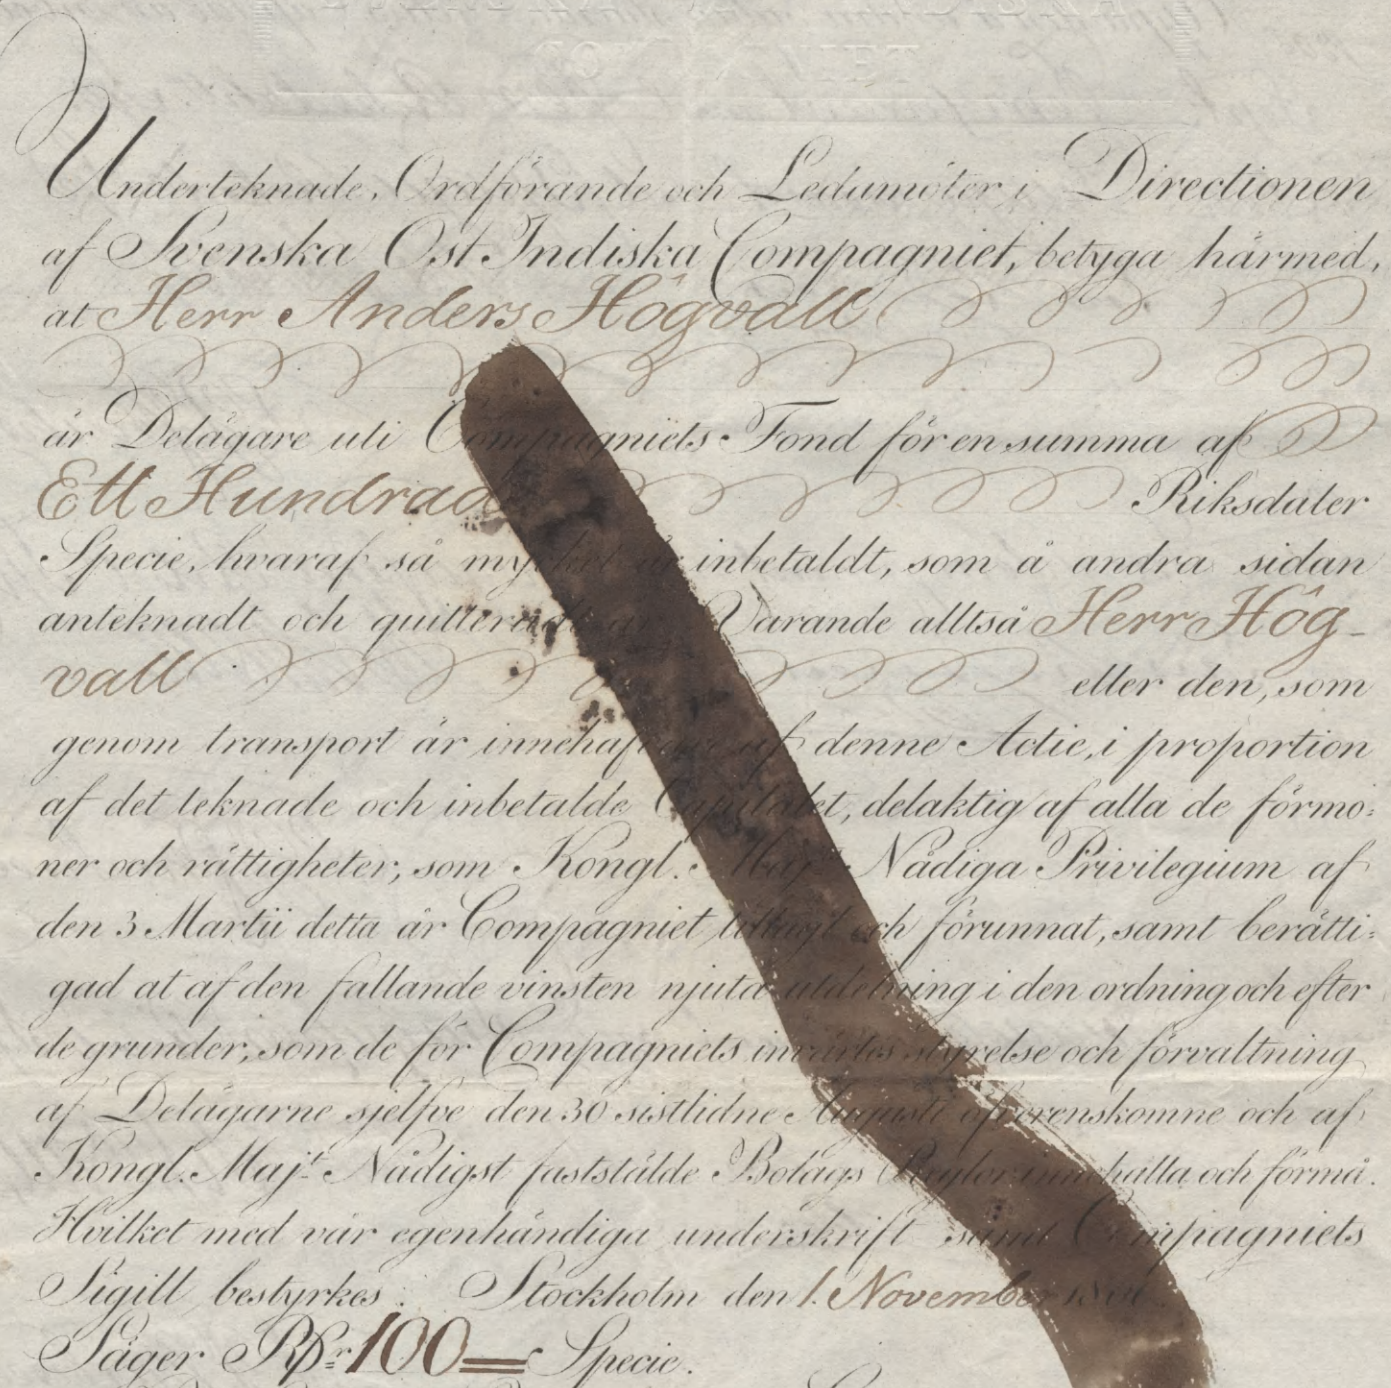 Underteknade, Ordförande och Ledamöter i Directionen
af Svenska Ost Indiska Compagniet, betyga härmed,
at Herr Anders Högvall
är Delägare uti Compagniets Fond för en summa af
Ett Hundrade Riksdaler
Specie, hvaraf så mycket är inbetaldt, som å andra sidan
anteknadt och quitteradt är; Varande alltså Herr Hög-
vall eller den, som
genom transport är innehafvare af denne Actie, i proportion
af det teknade och inbetalde Capitalet, delaktig af alla de förmo-
ner och rättigheter, som Kongl. Majts Nådiga Privilegium af
den 3 Martii detta år Compagniet tillagt och förunnat, samt berätti-
gad at af den fallande vinsten njuta utdelning i den ordning och efter
de grunder, som de för Compagniets invärtes styrelse och förvaltning
af Delägarne sjelfve den 30 sistlidne Augusti öfverenskomne och af
Kongl. Majt Nådigst faststälde Bolags Reglor innehålla och förmå.
Hvilket med vår egenhändiga underskrift samt Compagniets
Sigill bestyrkes. Stockholm den 1. November
Säger Rdr 100 Specie.